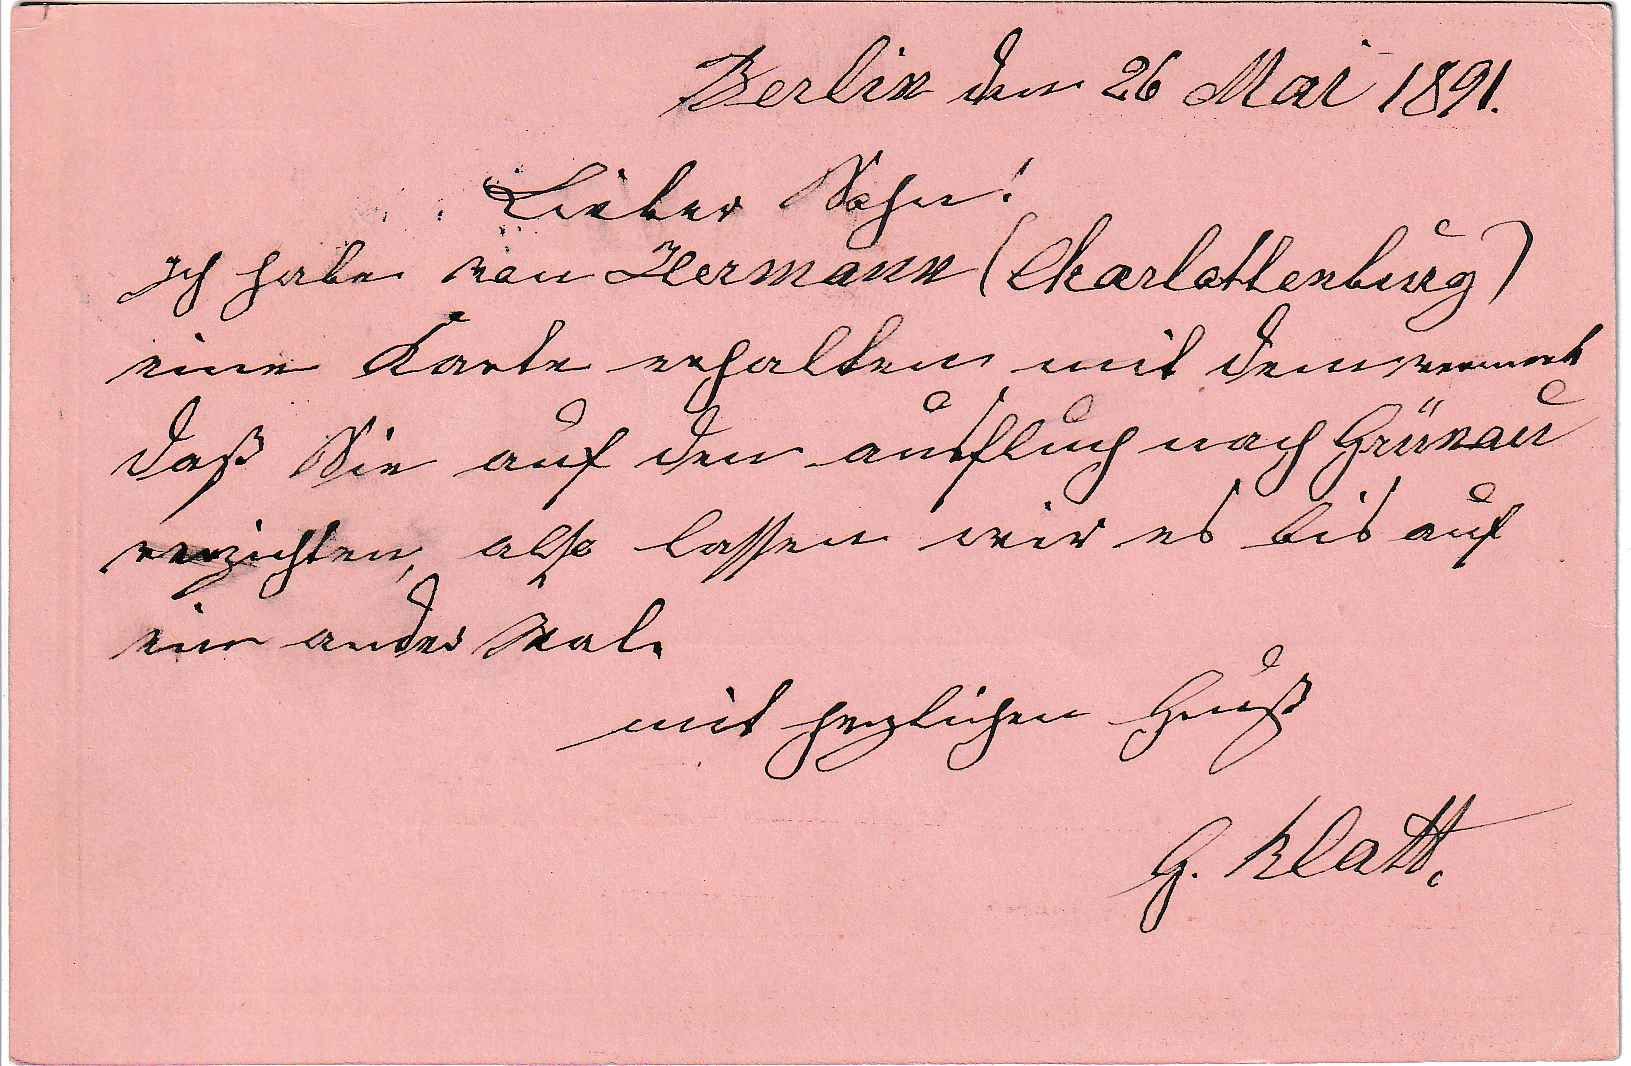 Berlin den 26 Mai 1891.
Lieber Sohn!
Ich habe von Hermann (Charlottenburg)
eine Karte erhalten mit dem vermerk
daß Sie auf den ausfluch nach Grünau
verzichten, also lassen wir es bis auf
ein ander Mal.
mit herzlichen Gruß
G. Klatt.